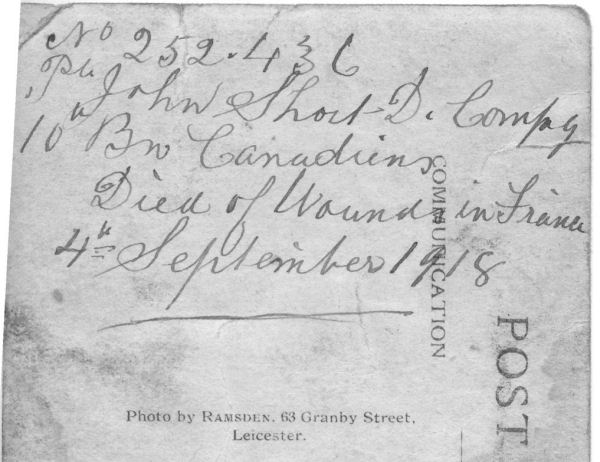 No 252.436
Pte John Short D. Compy
10th Bn Canadiens
Died of Wounds in France
4th September 1918
COMMUNICATION
POST
Photo by RAMSDEN, 63 Granby Street,
Leicester.